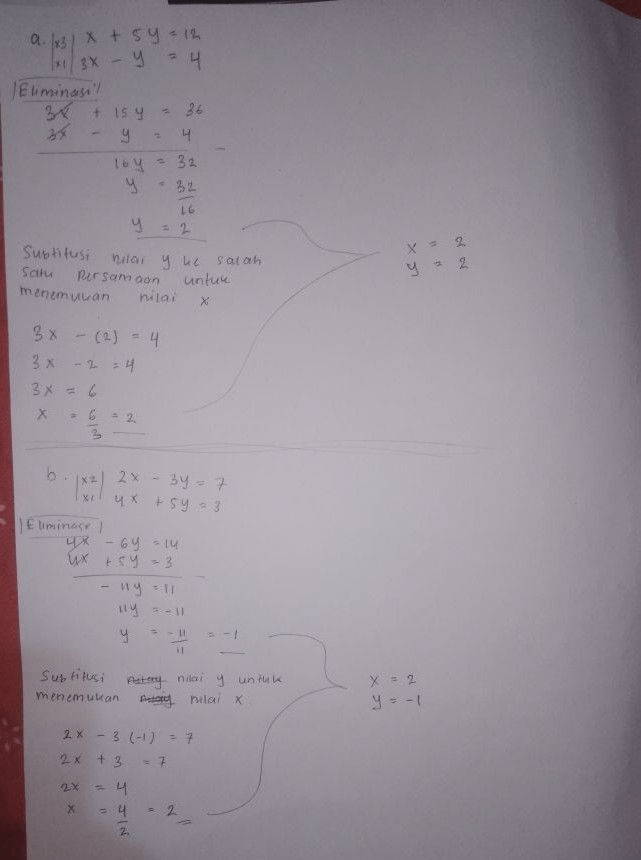 a. |x3| x + 5y = 12
|x1| 3x - y = 4
|Eliminasi|
3x + 15y = 36
3x - y = 4
16y = 32
y = 32
16
y = 2
Subtitusi nilai y ke salah
satu persamaan untuk
menemukan nilai x
x = 2
y = 2
3x - (2) = 4
3x - 2 = 4
3x = 6
x = 6 = 2
3
b. |x2| 2x - 3y = 7
|x1| 4x + 5y = 3
|Eliminasi|
4x - 6y = 14
4x + 5y = 3
- 11y = 11
11y = -11
y = -11 = -1
11
Subtitusi nilai y untuk
menemukan nilai x
x = 2
y = -1
2x - 3 (-1) = 7
2x + 3 = 7
2x = 4
x = 4 = 2
2